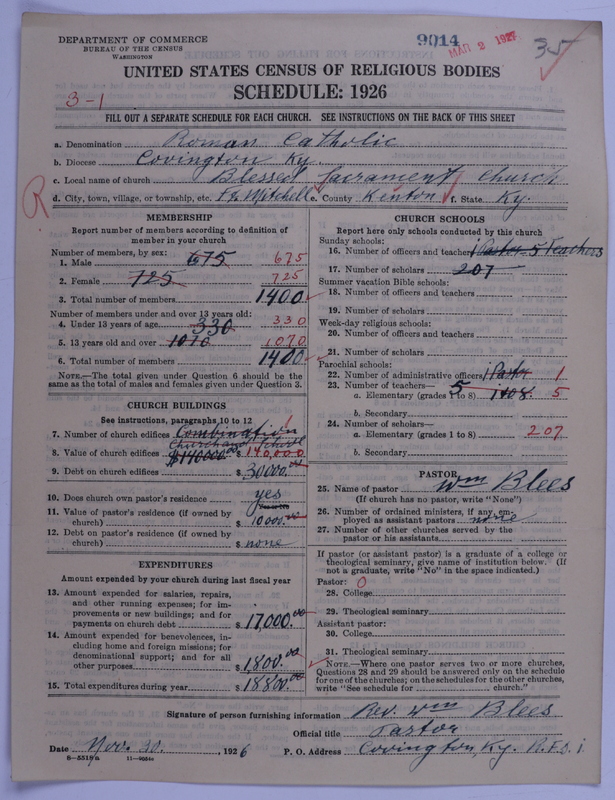 DEPARTMENT OF COMMERCE
BUREAU OF THE CENSUS
WASHINGTON
9014
MAR 2 1927
35
UNITED STATES CENSUS OF RELIGIOUS BODIES
SCHEDULE: 1926
3-1
FILL OUT A SEPARATE SCHEDULE FOR EACH CHURCH. SEE INSTRUCTIONS ON THE BACK OF THIS SHEET
a. Denomination Roman Catholic
b. Diocese Covington Ky.
c. Local name of church Blessed Sacrament Church
d. City, town, village, or township, etc. Ft. Mitchell e. County Kenton f. State Ky.
R
MEMBERSHIP
Report number of members according to definition of
member in your church
Number of members, by sex:
1. Male 675 675
2. Female 725 725
3. Total number of members 1400
Number of members under and over 13 years old:
4. Under 13 years of age 330 330
5. 13 years old and over 1070 1070
6. Total number of members 1400
NOTE.—The total given under Question 6 should be
the same as the total of males and females given under Question 3.
CHURCH BUILDINGS
See instructions, paragraphs 10 to 12
7. Number of church edifices Combination 1
Church and School
8. Value of church edifices $140000.00 $ 140,000
9. Debt on church edifices $ 30000.00
10. Does church own pastor's residence yes
Yes or No
11. Value of pastor's residence (if owned by
church) $ 10000.00
12. Debt on pastor's residence (if owned by
church) $ none
EXPENDITURES
Amount expended by your church during last fiscal year
13. Amount expended for salaries, repairs,
and other running expenses; for im-
provements or new buildings; and for
payments on church debt $ 17,000.00
14. Amount expended for benevolences, in-
cluding home and foreign missions; for
denominational support; and for all
other purposes $ 1,800.00
15. Total expenditures during year $ 18800.00
CHURCH SCHOOLS
Report here only schools conducted by this church
Sunday schools:
16. Number of officers and teachers 1 Pastor 5 Teachers
17. Number of scholars 207
Summer vacation Bible schools:
18. Number of officers and teachers
19. Number of scholars
Week-day religious schools:
20. Number of officers and teachers
21. Number of scholars
Parochial schools:
22. Number of administrative officers 1 Pastor 1
23. Number of teachers—
a. Elementary (grades 1 to 8) 5 1 to 8. 5
b. Secondary
24. Number of scholars—
a. Elementary (grades 1 to 8) 207
b. Secondary
PASTOR
25. Name of pastor Wm Blees
(If church has no pastor, write "None")
26. Number of ordained ministers, if any, em-
ployed as assistant pastors none
27. Number of other churches served by the
pastor or his assistants
If pastor (or assistant pastor) is a graduate of a college or
theological seminary, give name of institution below. (If
not a graduate, write "No" in the space indicated.)
Pastor: 0
28. College
29. Theological seminary
Assistant pastor:
30. College
31. Theological seminary
NOTE.—Where one pastor serves two or more churches,
Questions 28 and 29 should be answered only on the schedule
for one of the churches; on the schedules for the other churches,
write "See schedule for church."
Signature of person furnishing information Rev. Wm Blees
Official title Pastor
Date Nov. 30. , 1926 P. O. Address Covington, Ky. R.F.D. 1
8—5518a